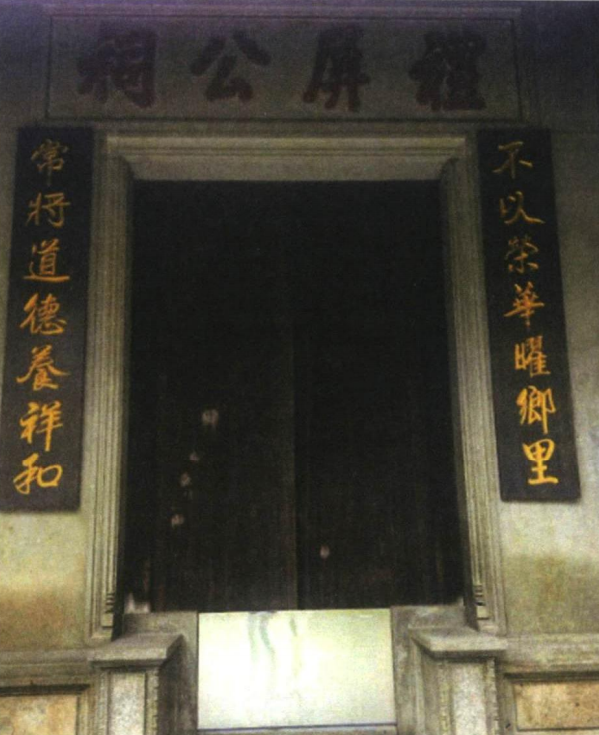 禮屏公祠
不以榮華曜鄉里
常將道德養祥和